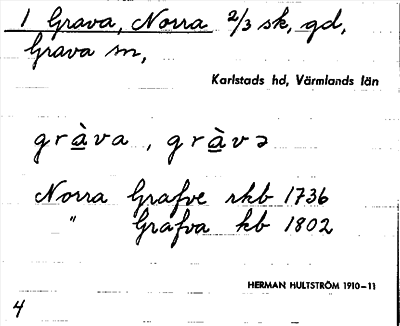 1 Grava, Norra 2/3 sk, gd,
Grava sn,
Karlstads hd, Värmlands län
gràva, gràvə
Norra Grafve rkb 1736
" Grafva kb 1802
HERMAN HULTSTRÖM 1910-11
4